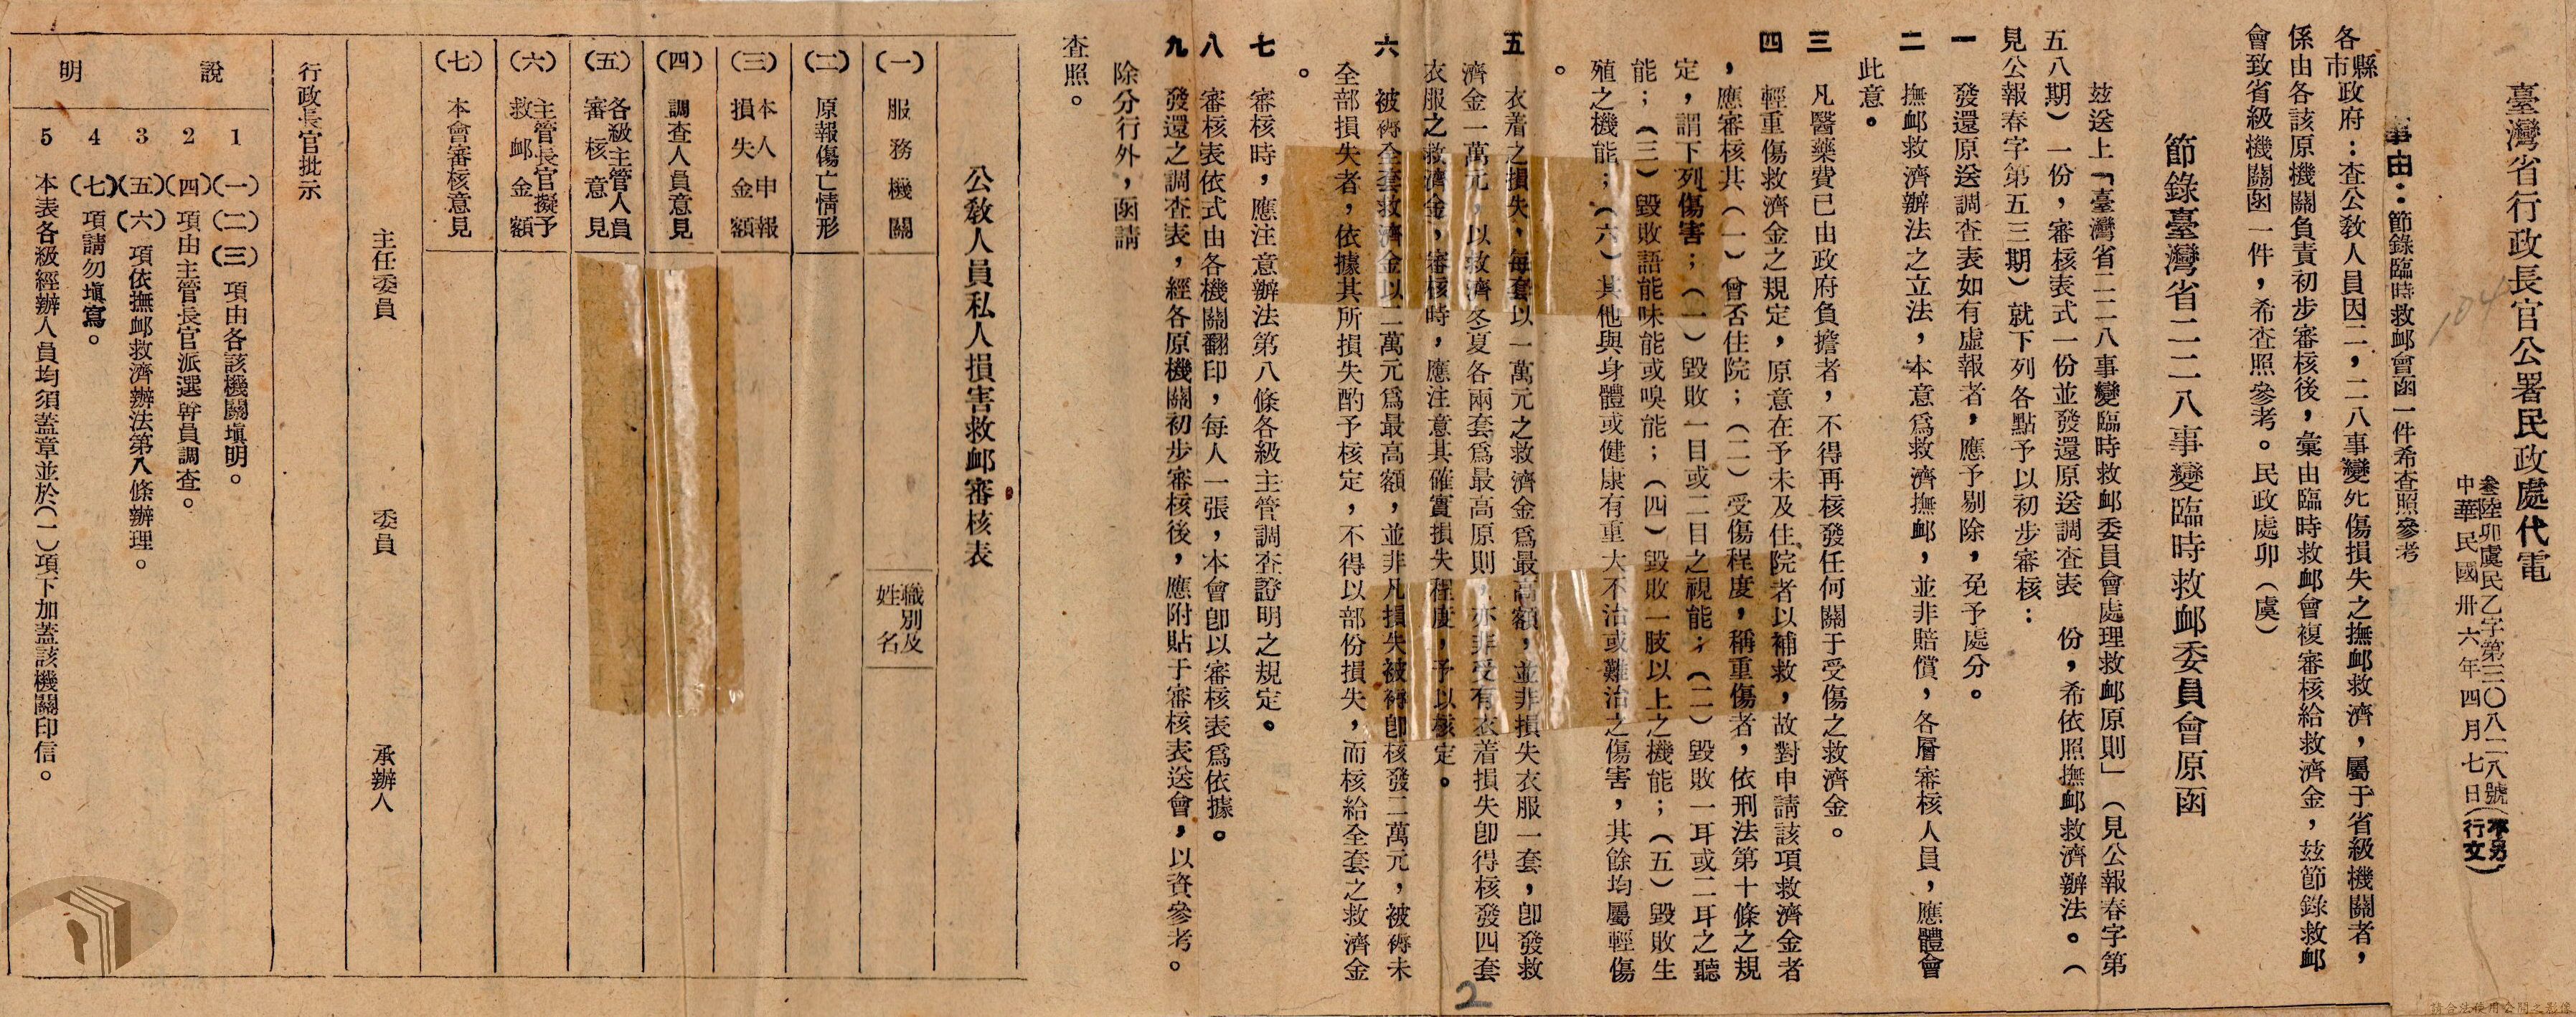 臺灣省行政長官公署民政處代電
叁陸卯虞民乙字第三〇八二八號(不另行文)
中華民國卅六年四月七日
事由：節錄臨時救卹會函一件希查照參考
各縣市政府：查公教人員因二，二八事變死傷損失之撫卹救濟，屬于省級機關者，
係由各該原機關負責初步審核後，彙由臨時救卹會複審核給救濟金，玆節錄救卹
會致省級機關函一件，希查照參考。民政處卯（虞）
節錄臺灣省二二八事變臨時救卹委員會原函
玆送上「臺灣省二二八事變臨時救卹委員會處理救卹原則」（見公報春字第
五八期）一份，審核表式一份並發還原送調查表　份，希依照撫卹救濟辦法。（
見公報春字第五三期）就下列各點予以初步審核：
一　發還原送調查表如有虛報者，應予剔除，免予處分。
二　撫卹救濟辦法之立法，本意爲救濟撫卹，並非賠償，各層審核人員，應體會
此意。
三　凡醫藥費已由政府負擔者，不得再核發任何關于受傷之救濟金。
四　輕重傷救濟金之規定，原意在予未及住院者以補救，故對申請該項救濟金者
，應審核其（一）曾否住院；（二）受傷程度，稱重傷者，依刑法第十條之規
定，謂下列傷害；（一）毀敗一目或二目之視能；（二）毀敗一耳或二耳之聽
能；（三）毀敗語能味能或嗅能；（四）毀敗一肢以上之機能；（五）毀敗生
殖之機能；（六）其他與身體或健康有重大不治或難治之傷害，其餘均屬輕傷
。
五　衣着之損失，每套以一萬元之救濟金爲最高額，並非損失衣服一套，卽發救
濟金一萬元，以救濟冬夏各兩套爲最高原則，亦非受有衣着損失卽得核發四套
衣服之救濟金，審核時，應注意其確實損失程度，予以核定。
六　被褥全套救濟金以二萬元爲最高額，並非凡損失被褥卽核發二萬元，被褥未
全部損失者，依據其所損失酌予核定，不得以部份損失，而核給全套之救濟金
。
七　審核時，應注意辦法第八條各級主管調查證明之規定。
八　審核表依式由各機關翻印，每人一張，本會卽以審核表爲依據。
九　發還之調查表，經各原機關初步審核後，應附貼于審核表送會，以資參考。
除分行外，函請
查照。
公教人員私人損害救卹審核表
(一)　服務機關
職別及姓名
(二)　原報傷亡情形
(三)　本人申報損失金額
(四)　調查人員意見
(五)　各級主管人員審核意見
(六)　主管長官擬予救卹金額
(七)　本會審核意見
主任委員　委員　承辦人
行政長官批示
說明
1　(一)(二)(三)項由各該機關塡明。
2　(四)項由主管長官派選幹員調查。
3　(五)(六)項依撫卹救濟辦法第八條辦理。
4　(七)項請勿塡寫。
5　本表各級經辦人員均須蓋章並於(一)項下加蓋該機關印信。
104
2
請合法使用公開之影像